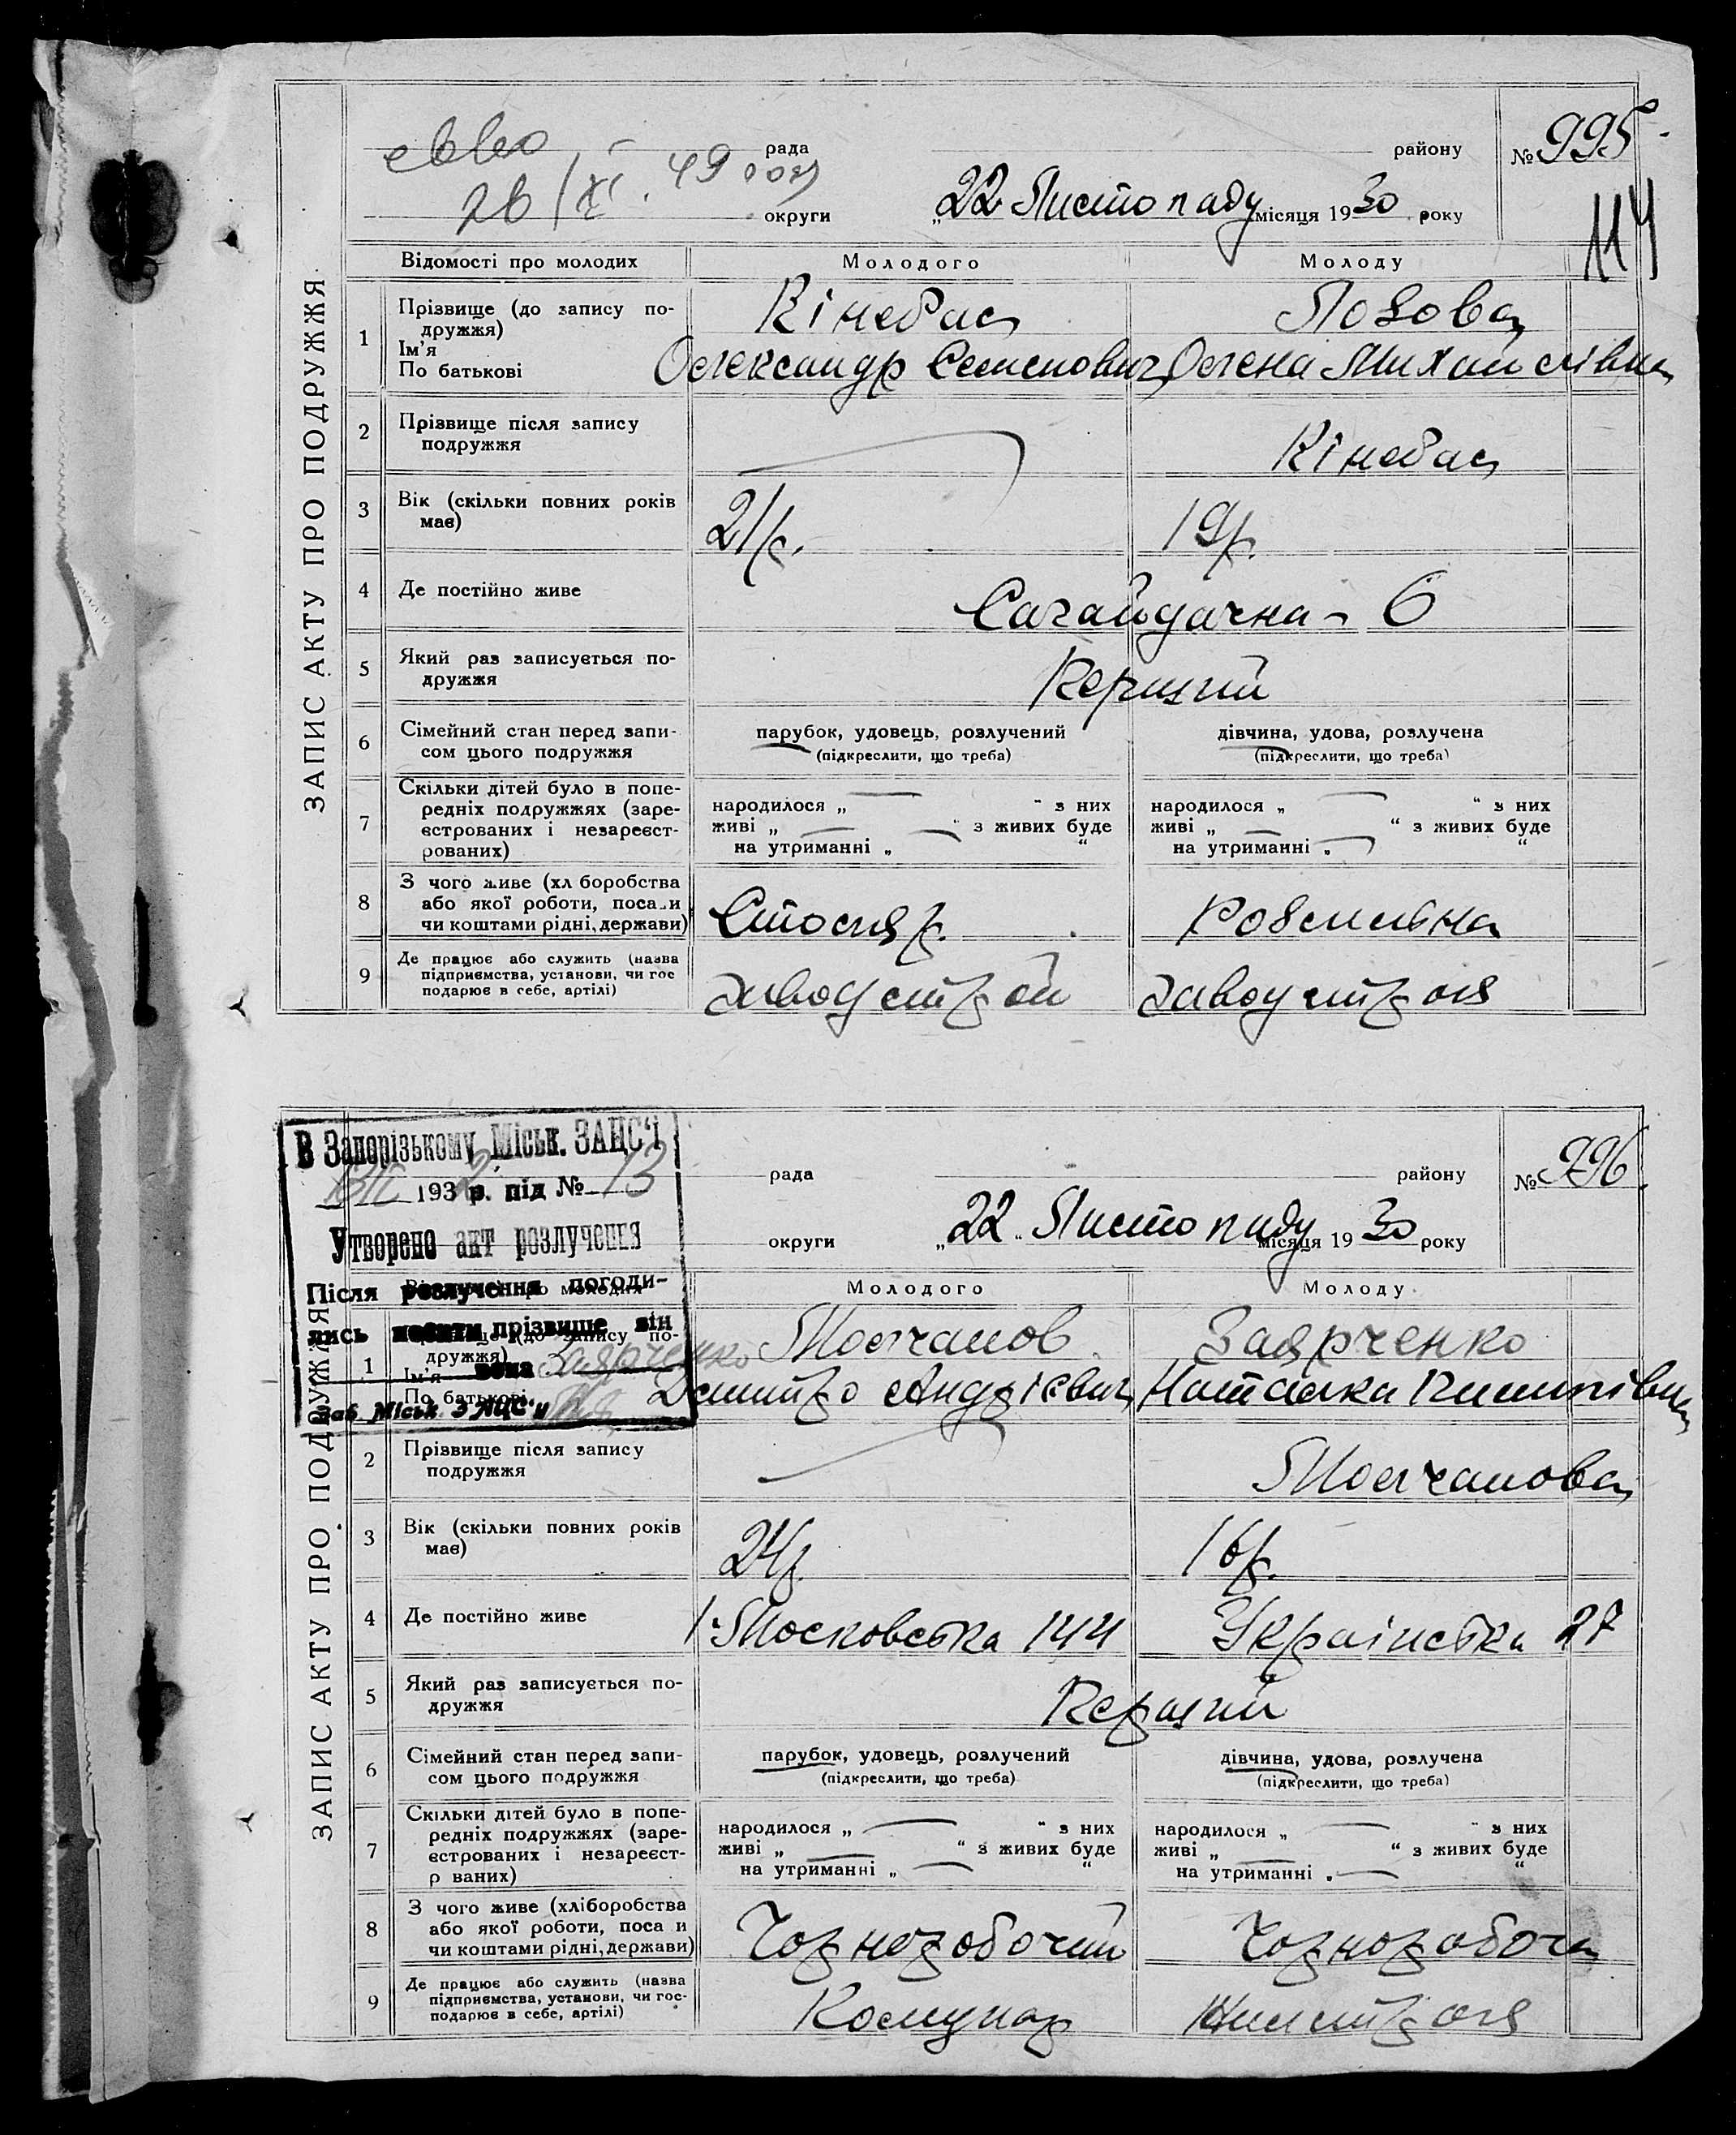 ЗАПИС АКТУ ПРО ПОДРУЖЖЯ
рада
району
№ 995
26/XI. 49
округи
„22 Листопаду місяця 1930 року
114
Відомості про молодих
Молодого
Молоду
1
Прізвище (до запису по-
дружжя)
Ім'я
По батькові
Кінебас
Олександр Семенович
Лозова
Олена Михайлівна
2
Прізвище після запису
подружжя
Кінебас
3
Вік (скільки повних років
має)
21 р.
19 р.
4
Де постійно живе
Сагайдачна - 6
5
Який раз записується по-
дружжя
Перший
6
Сімейний стан перед запи-
сом цього подружжя
парубок, удовець, розлучений
(підкреслити, що треба)
дівчина, удова, розлучена
(підкреслити, що треба)
7
Скільки дітей було в попе-
редніх подружжях (заре-
єстрованих і незареєст-
рованих)
народилося „ — “ з них
живі „ — “ з живих буде
на утриманні „ — “
народилося „ — “ з них
живі „ — “ з живих буде
на утриманні „ — “
8
З чого живе (хл боробства
або якої роботи, поса и
чи коштами рідні, держави)
Столяр.
Робітна
9
Де працює або служить (назва
підприємства, установи, чи гос
подарює в себе, артілі)
Заводстрой
ЗАПИС АКТУ ПРО ПОДРУЖЖЯ
В Запорізькому Міськ. ЗАЦС‘і
1932 р. під № 13
Утворено акт розлучення
Після розлучення погоди-
лись носити прізвище він
вона Заярченко
Заб Міськ ЗАЦС‘у
рада
району
№ 996.
округи
„22“ Листопаду місяця 1930 року
Молодого
Молоду
1
дружжя)
Ім'я
По батькові
Молчанов
Дмитро Андрієвич
Заярченко
Наталка Пилипівна
2
Прізвище після запису
подружжя
Молчанова
3
Вік (скільки повних років
має)
24 р.
16 р.
4
Де постійно живе
1. Московська 144
Українська 27
5
Який раз записується по-
дружжя
Перший
6
Сімейний стан перед запи-
сом цього подружжя
парубок, удовець, розлучений
(підкреслити, що треба)
дівчина, удова, розлучена
(підкреслити, що треба)
7
Скільки дітей було в попе-
редніх подружжях (заре-
єстрованих і незареєст-
р ваних)
народилося „ — “ з них
живі „ — “ з живих буде
на утриманні „ — “
народилося „ — “ з них
живі „ — “ з живих буде
на утриманні „ — “
8
З чого живе (хліборобства
або якої роботи, поса и
чи коштами рідні, держави)
Чорноробочий
Чорноробоча
9
Де працює або служить (назва
підприємства, установи, чи гос-
подарює в себе, артілі)
Комунар